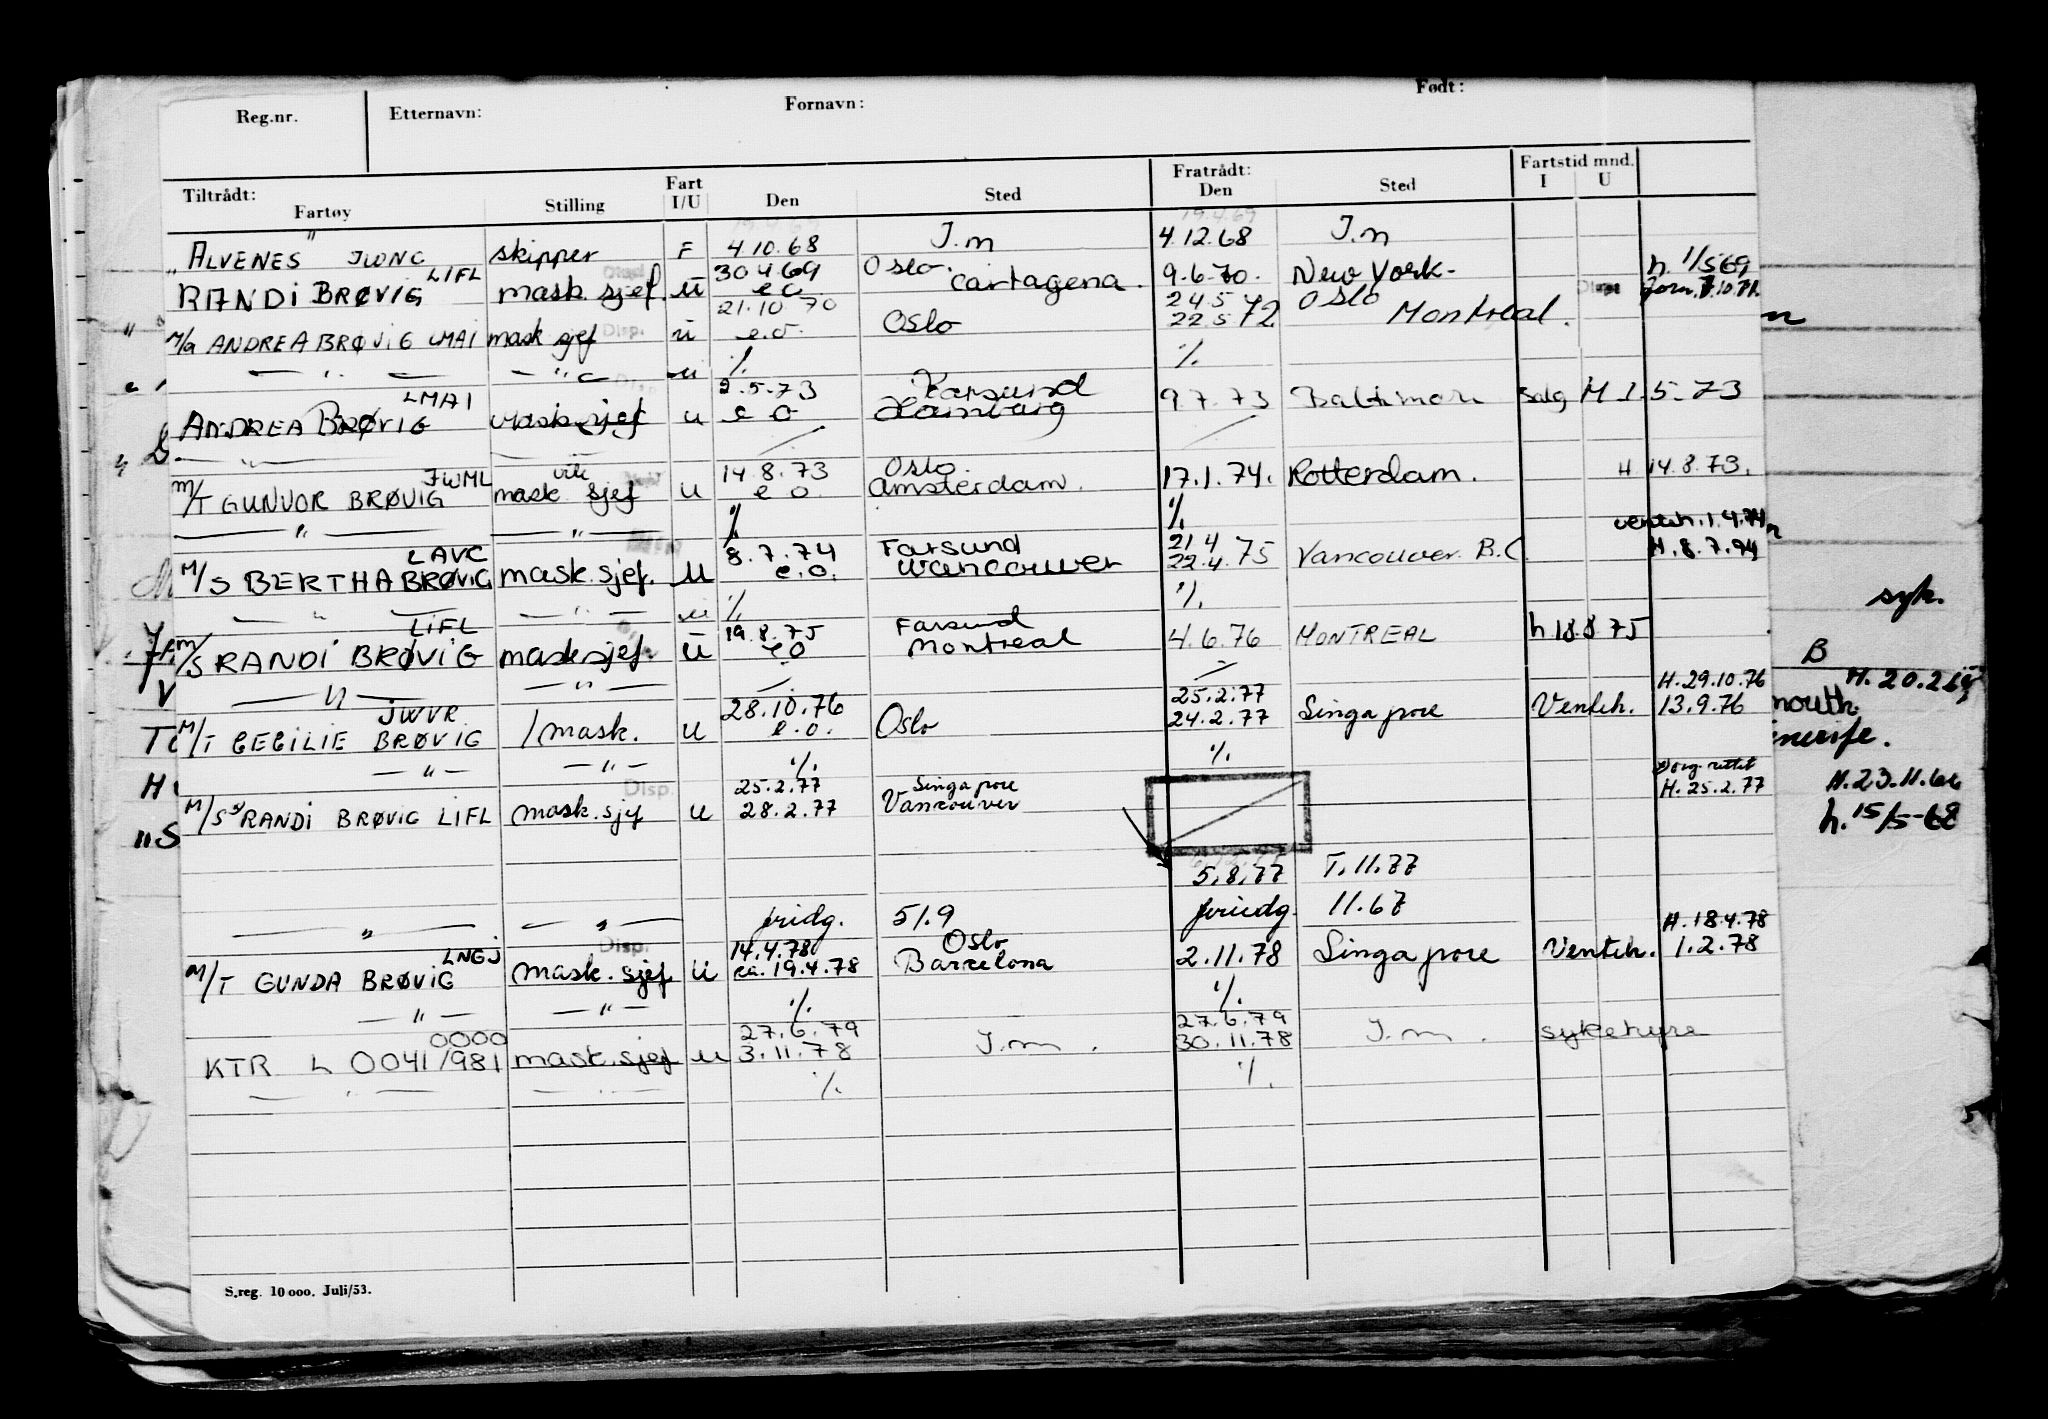 Reg.nr. Etternavn: Fornavn: Født:
Tiltrådt: Fartøy Stilling Fart I/U Den Sted Fratrådt: Den Sted Fartstid mnd. I U
"ALVENES" JWNG skipper F 4.10.68 I.m 4.12.68 I.m
LIFL 30.4.69 Oslo. h. 1/5 69
RANDI BRØVIG mask. sjef. u e o cartagena. 9.6.70. New York.
21.10.70 24.5 Oslo
M/S ANDREA BRØVIG LMAI mask sjef u e.o. Oslo 22.5 72 Montreal.
— " — — " — u % %
LMAI 2.5.73 Farsund
ANDREA BRØVIG mask sjef u e o Hamburg 9.7.73 Baltimore Salg M 1.5.73
— " —
JWML vik 14.8.73 Oslo.
M/T GUNVOR BRØVIG mask sjef u e o. Amsterdam. 17.1.74. Rotterdam. H 14.8.73.
— " — — " — % % venteh. 1.4.74
LAVC 8.7.74 Farsund 21.4 H. 8.7.74
M/S BERTHA BRØVIG mask. sjef. u e.o. Vancouver 22.4. 75 Vancouver. B.C.
— " — — " — u % %
LIFL 19.8.75 Farsund
M/S RANDI BRØVIG mask sjef. u e o Montreal 4.6.76 MONTREAL h. 18.8 75
— " — — " —
JWVR 28.10.76 25.2.77 H. 29.10.76
M/T CECILIE BRØVIG 1 mask. u e.o. Oslo 24.2.77 Singapore Venteh. 13.9.76
— " — — " — % %
Disp. 25.2.77 Singapore H. 25.2.77
M/S RANDI BRØVIG LIFL mask. sjef u 28.2.77 Vancouver
5.8.77 T.11.77
— " — — " — fridg. 51.9 friedg. 11.67
LNGJ Disp. 14.4.78 Oslo H. 18.4.78
M/T GUNDA BRØVIG mask. sjef u ca. 19.4.78 Barcelona 2.11.78 Singapore Venteh. 1.2.78
— " — — " — % %
0000 27.6.79 27.6.79
KTR L 0041/981 mask. sjef u 3.11.78 I.m. 30.11.78 I.m. sykehyre
— " — — " — % %
S.reg. 10 000. Juli/53.
syk.
B
H. 20.2.65
mouth
enerife.
H. 23.11.66
h. 15/5-68